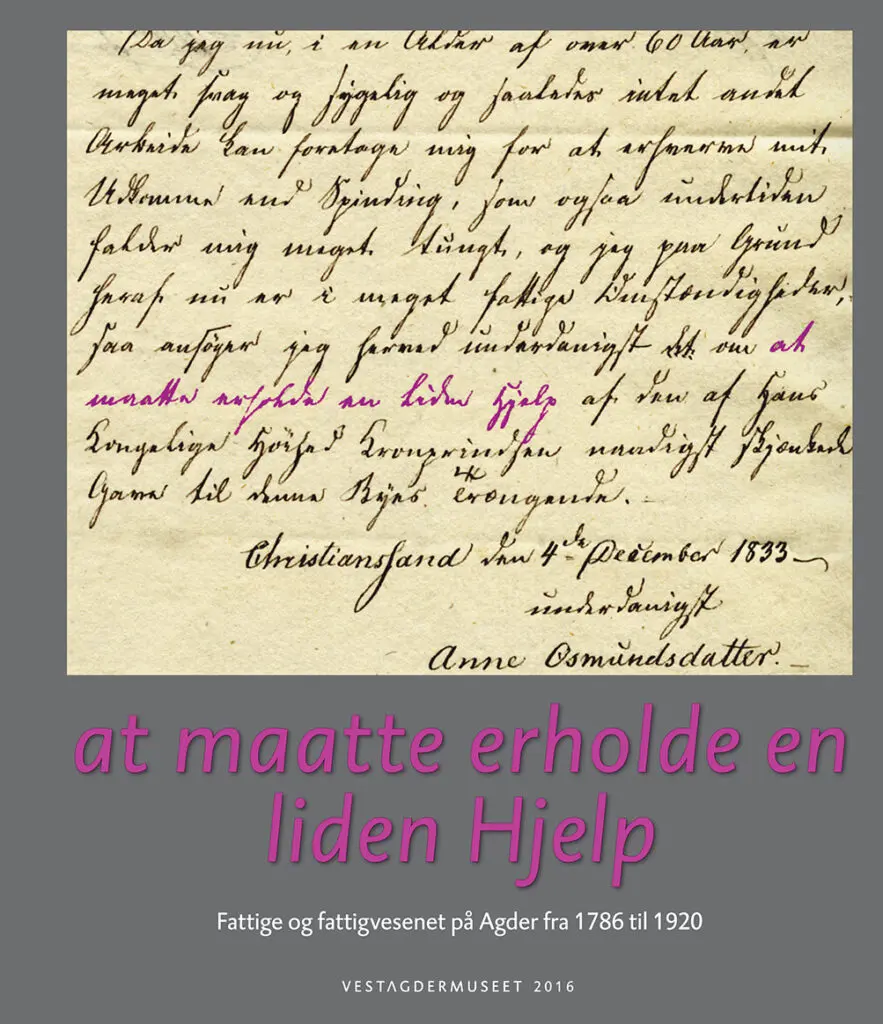 Da jeg nu, i en Alder af over 60 Aar, er
meget svag og sygelig og saaledes intet andet
Arbeide kan foretage mig for at erhverve mit
Udkomme end Spinding, som ogsaa undertiden
falder mig meget tungt, og jeg paa Grund
heraf nu er i meget fattige Omstændigheder,
saa ansøger jeg herved underdanigst det om at
maatte erholde en liden Hjelp af den af Hans
Kongelige Höihed Kronprindsen naadigst skjænkede
Gave til denne Byes Trængende.
Christianssand den 4de December 1833
underdanigst
Anne Osmundsdatter.
at maatte erholde en
liden Hjelp
Fattige og fattigvesenet på Agder fra 1786 til 1920
VESTAGDERMUSEET 2016